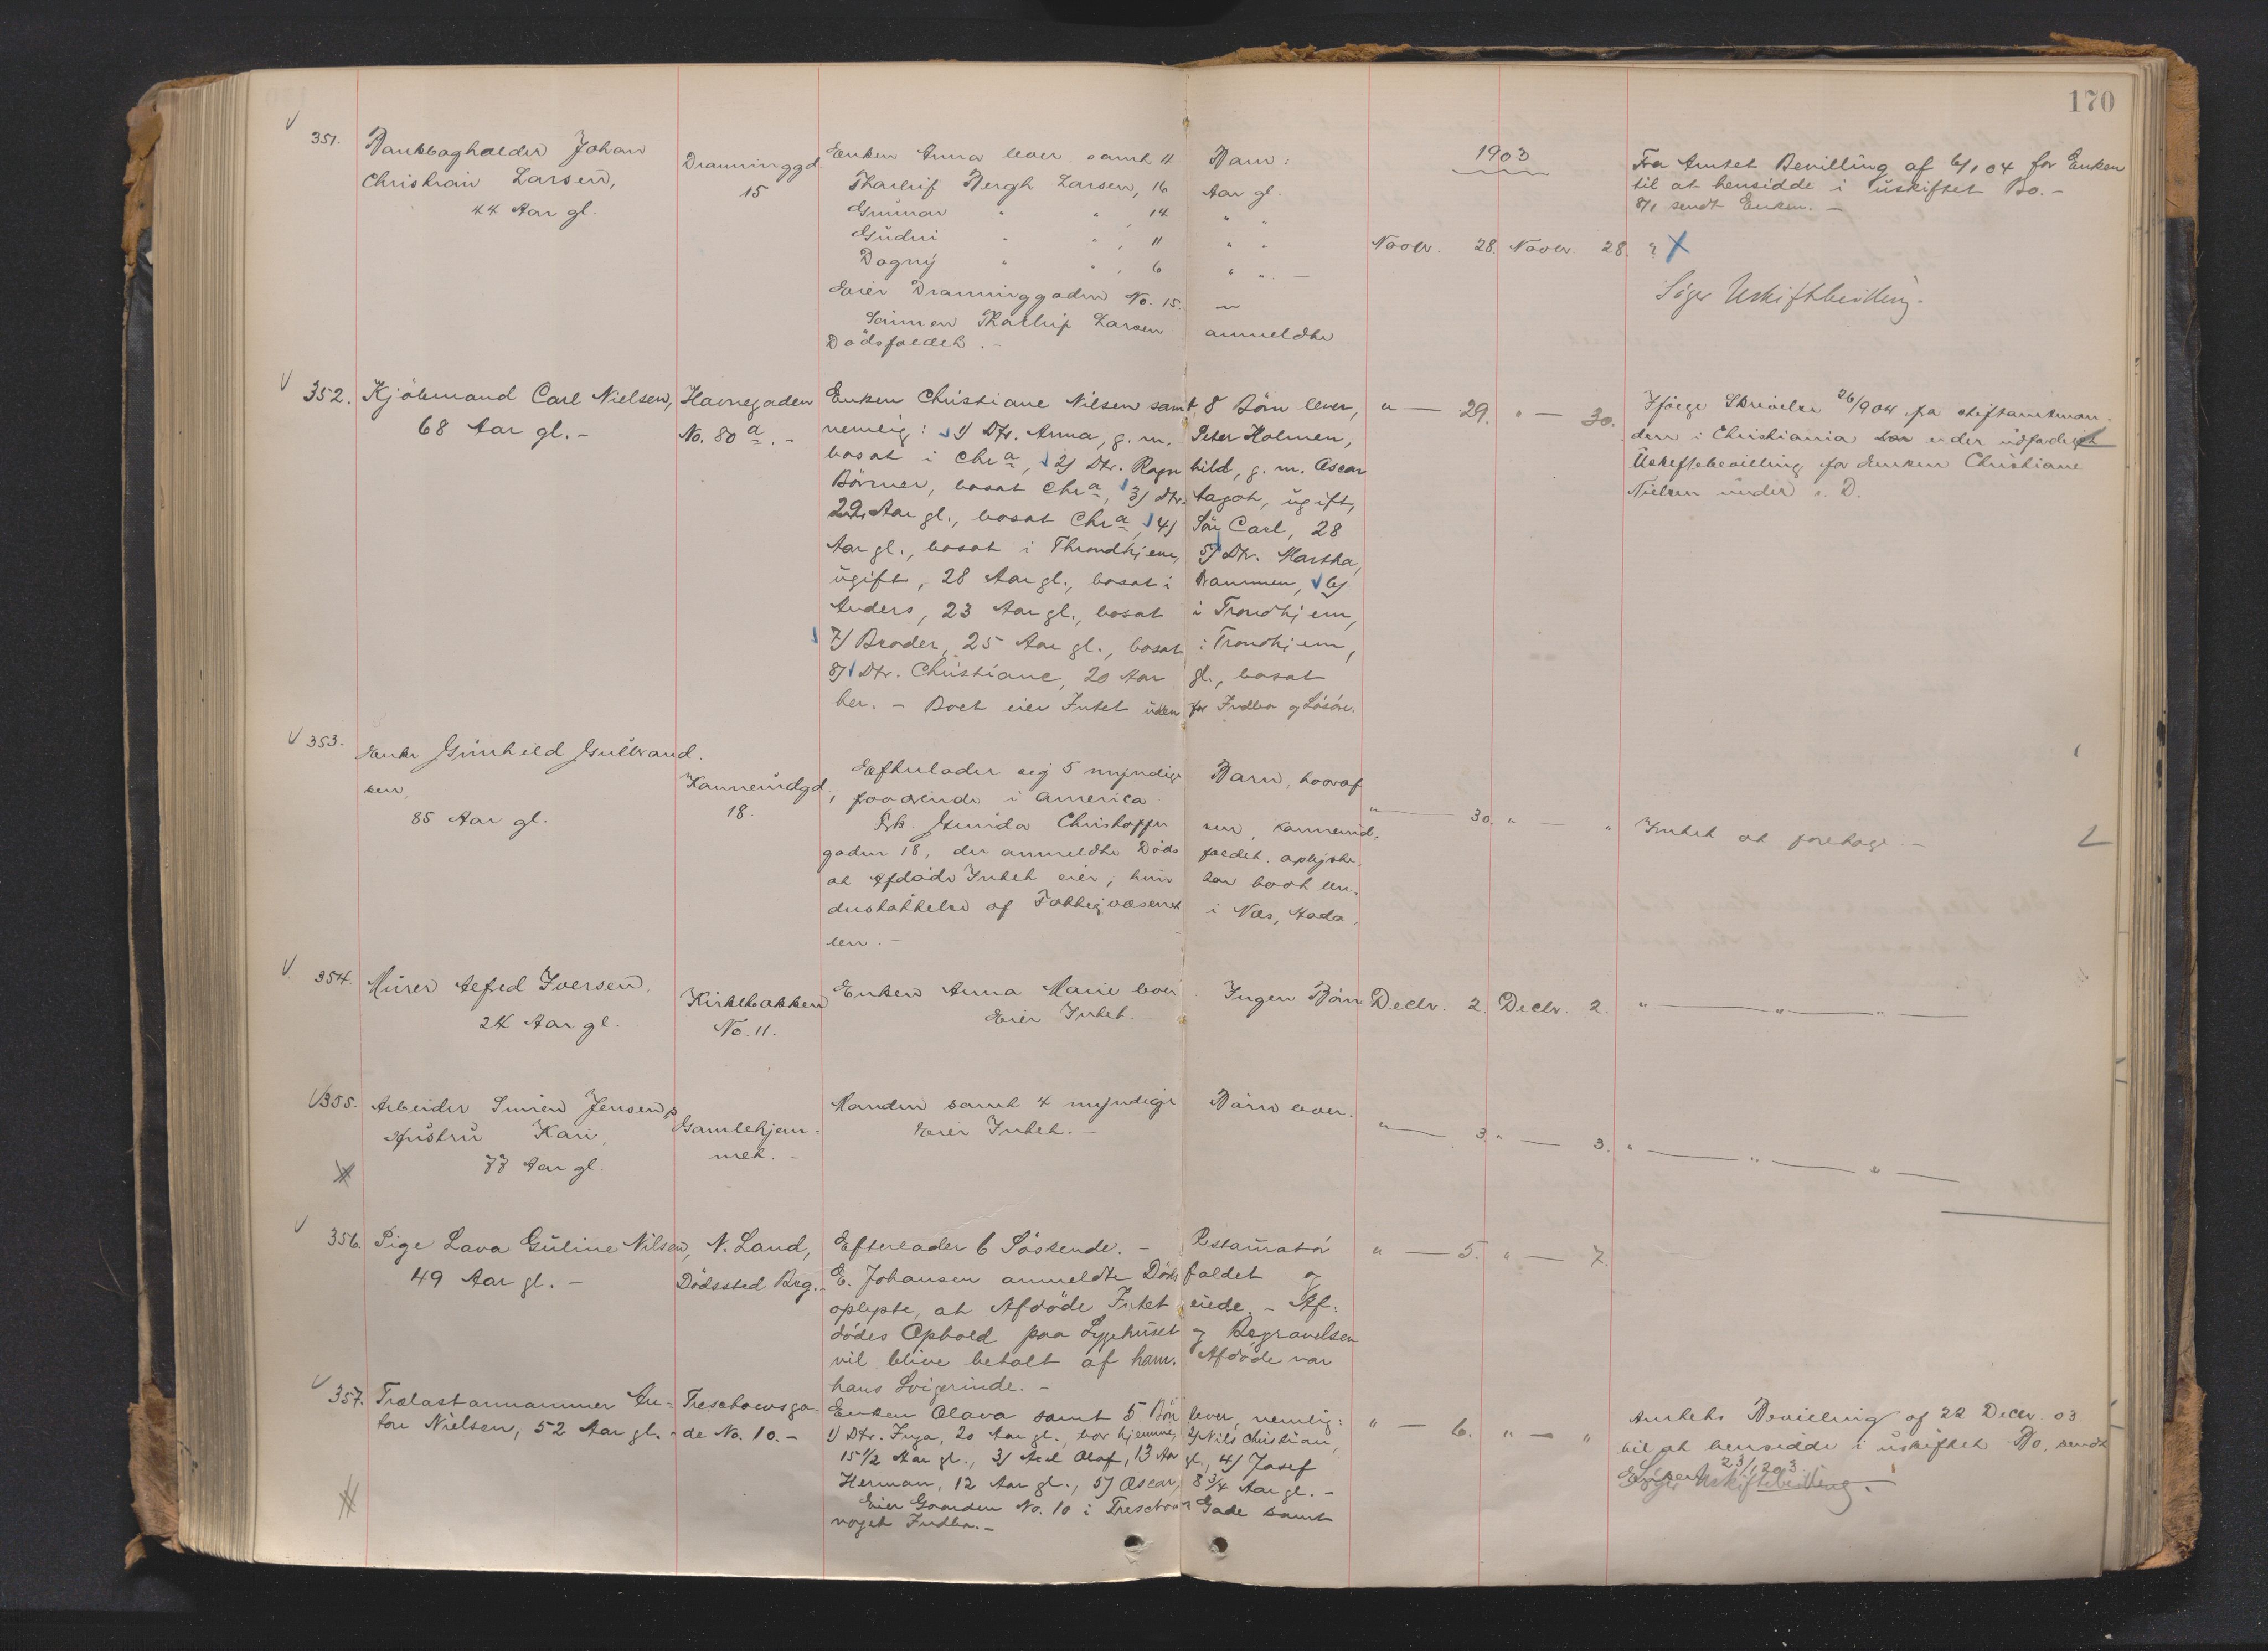 170
1903
351. Bankbogholder Johan
Christian Larsen,
44 Aar gl.
Dronninggd.
15
Enken Anna lever samt 4 Børn:
Thorleif Bergh Larsen, 16 Aar gl.
Gunnar " " , 14 " "
Gudni " " , 11 " "
Dagny " " , 6 " " . —
Eier Dronninggaden No. 15. —
Sønnen Thorleif Larsen anmeldte
Dødsfaldet. —
Novbr. 28. Novbr. 28.
Fra Amtet Bevilling af 6/1 04 for Enken
til at hensidde i uskiftet Bo. —
8/1 sendt Enken. —
Søger Uskiftbevilling.
352. Kjøbmand Carl Nielsen,
68 Aar gl. —
Havnegaden
No. 80 a. —
Enken Christiane Nilsen samt 8 Børn lever,
nemlig: 1) Dtr. Anna, g. m. Peter Holmen,
bosat i Chra, 2) Dtr. Ragnhild, g. m. Oscar
Börner, bosat Chra, 3) Dtr. Aagot, ugift,
29 Aar gl., bosat Chra, 4) Søn Carl, 28
Aar gl., bosat i Throndhjem, 5) Dtr. Martha,
ugift, 28 Aar gl., bosat i Drammen, 6)
Anders, 23 Aar gl., bosat i Trondhjem,
7) Broder, 25 Aar gl., bosat i Trondhjem,
8) Dtr. Christiane, 20 Aar gl., bosat
her. — Boet eier Intet uden for Indbo og Løsöre.
" — 29. " — 30.
Ifølge Skrivelse 26/1 904 fra Stiftamtman-
den i Christiania er der udfærdiget
Uskiftebevilling for Enken Christiane
Nielsen under s. D.
353. Enke Gunhild Gulbrand-
sen,
85 Aar gl.
18.
Efterlader sig 5 myndige Børn, hvoraf
i America.
Frk. Gunda Christoffersen,
gaden 18, der anmeldte Dødsfaldet, oplyste,
at Afdøde Intet eier; hun har havt Un-
derstøttelse af Fattigvæsenet i Næs, Hada-
len. —
" — 30. " — "
Intet at foretage. —
354. Murer Alfred Iversen,
24 Aar gl.
Kirkebakken
No. 11.
Enken Anna Marie lever. Ingen Børn
Eier Intet. —
Decbr. 2. Decbr. 2. " — " — " —
355. Arbeider Simen Jensens
Hustru Kari,
77 Aar gl.
Gamlehjem-
met. —
Manden samt 4 myndige Børn lever.
Eier Intet. —
" — 3. " — 3. " — " — " —
356. Pige Lava Guline Nilsen,
49 Aar gl. —
N. Land,
Dödssted Brg. —
Efterlader 6 Söskende. — Restauratör
E. Johansen anmeldte Dödsfaldet og
oplyste, at Afdöde Intet eiede. — Af-
dödes Ophold paa Sygehuset og Begravelsen
vil blive betalt af ham. Afdöde var
hans Svigerinde. —
" — 5. " — 7.
357. Trælastannammer An-
ton Nielsen, 52 Aar gl. —
Treschowsga-
de No. 10. —
Enken Olava samt 5 Börn lever, nemlig:
1) Dtr. Inga, 20 Aar gl., bor hjemme, 2) Nils Christian,
15 1/2 Aar gl., 3) Axel Olaf, 13 Aar gl., 4) Josef
Herman, 12 Aar gl., 5) Oscar, 8 3/4 Aar gl. —
Eier Gaarden No. 10 i Treschows Gade samt
noget Indbo. —
" — 6. " — "
Amtets Bevilling af 22 Decbr. 03
til at hensidde i uskiftet Bo, sendt
Søger Uskiftebevilling.